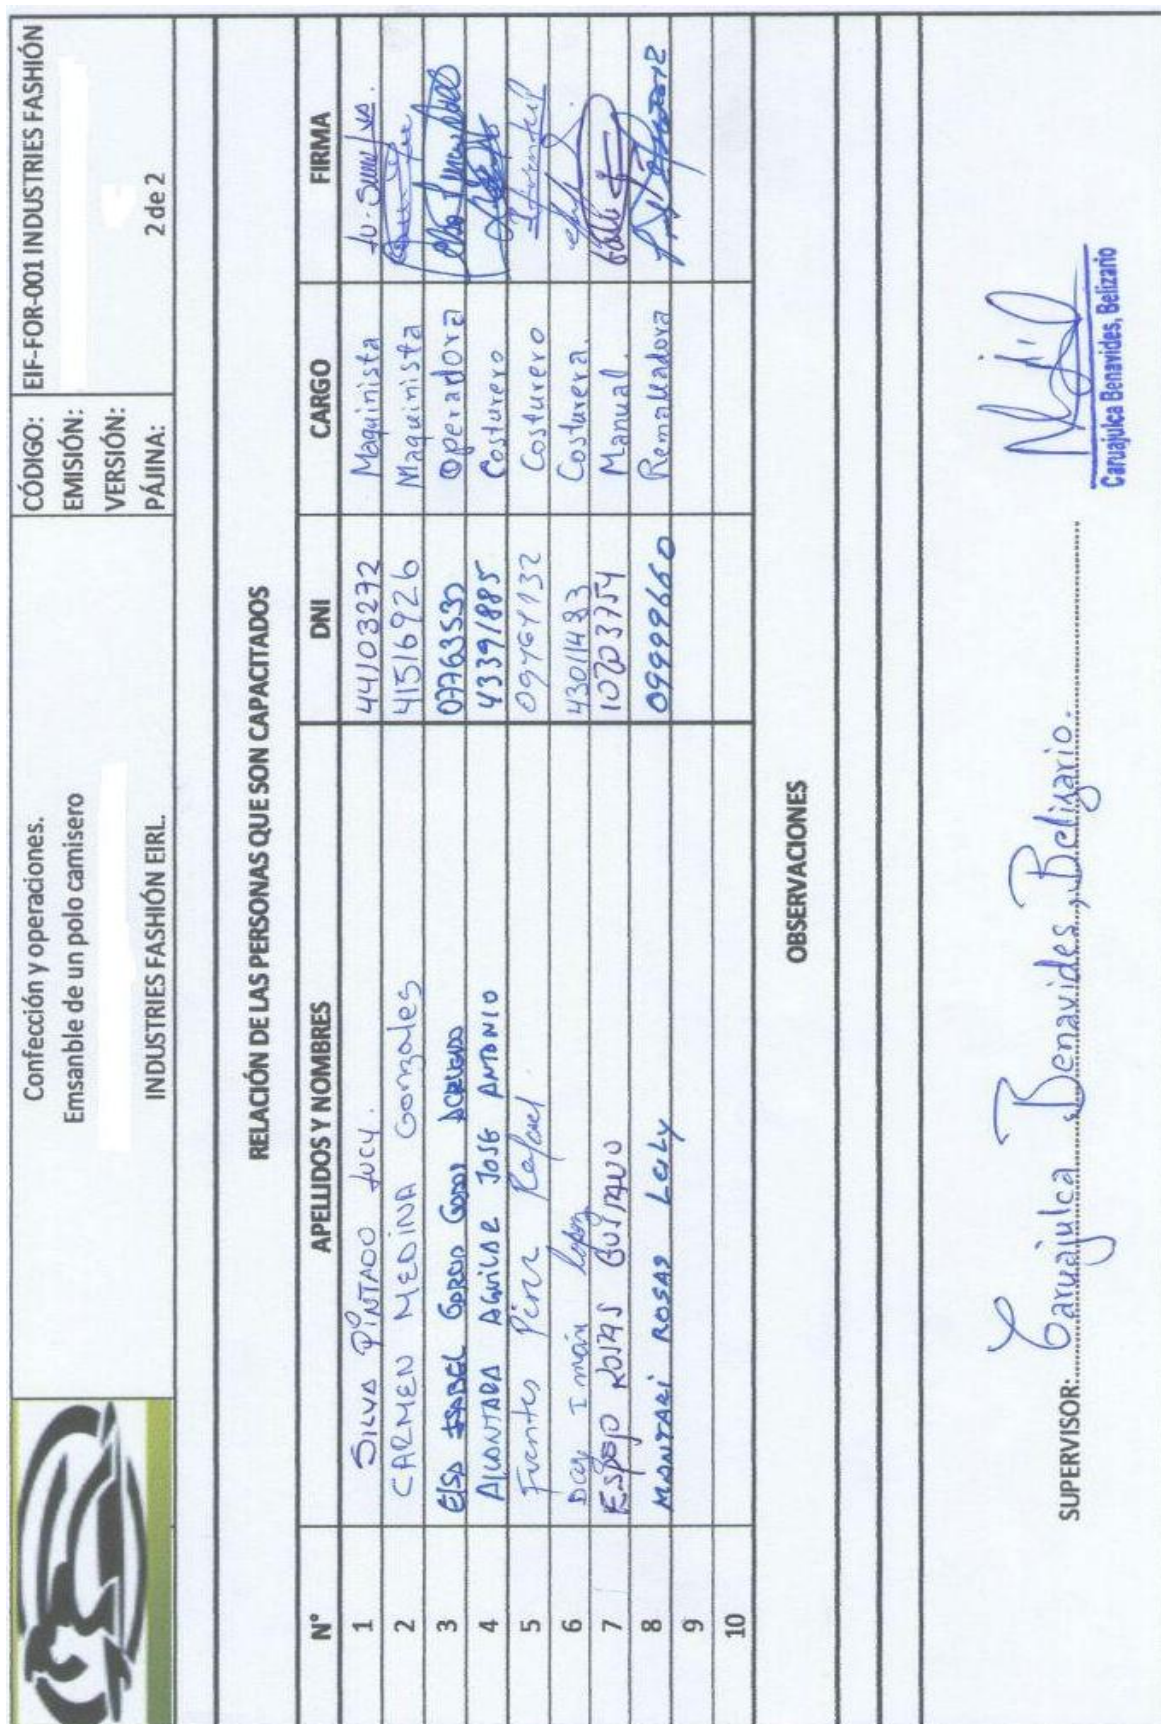 Confección y operaciones.
Emsanble de un polo camisero
INDUSTRIES FASHIÓN EIRL.
CÓDIGO: EIF-FOR-001 INDUSTRIES FASHIÓN
EMISIÓN:
VERSIÓN:
PÁJINA: 2 de 2
RELACIÓN DE LAS PERSONAS QUE SON CAPACITADOS
N° APELLIDOS Y NOMBRES DNI CARGO FIRMA
1 SILVA PINTADO LUCY. 44103272 Maquinista
2 CARMEN MEDINA Gonzales 41516926 Maquinista
3 Elsa ISABEL Godos 07763530 Operadora
4 ALCANTARA AGUILAR JOSE ANTONIO 43391885 Costurero
5 Fuentes Rafael Costurero
6 43011483 Costurera.
7 Espejo ROJAS 10203754 Manual.
8 MANTARI ROSAS LULY 09999660 Remalladora
9
10
OBSERVACIONES
SUPERVISOR: Caruajulca Benavides, Belizario.
Caruajulca Benavides, Belizario